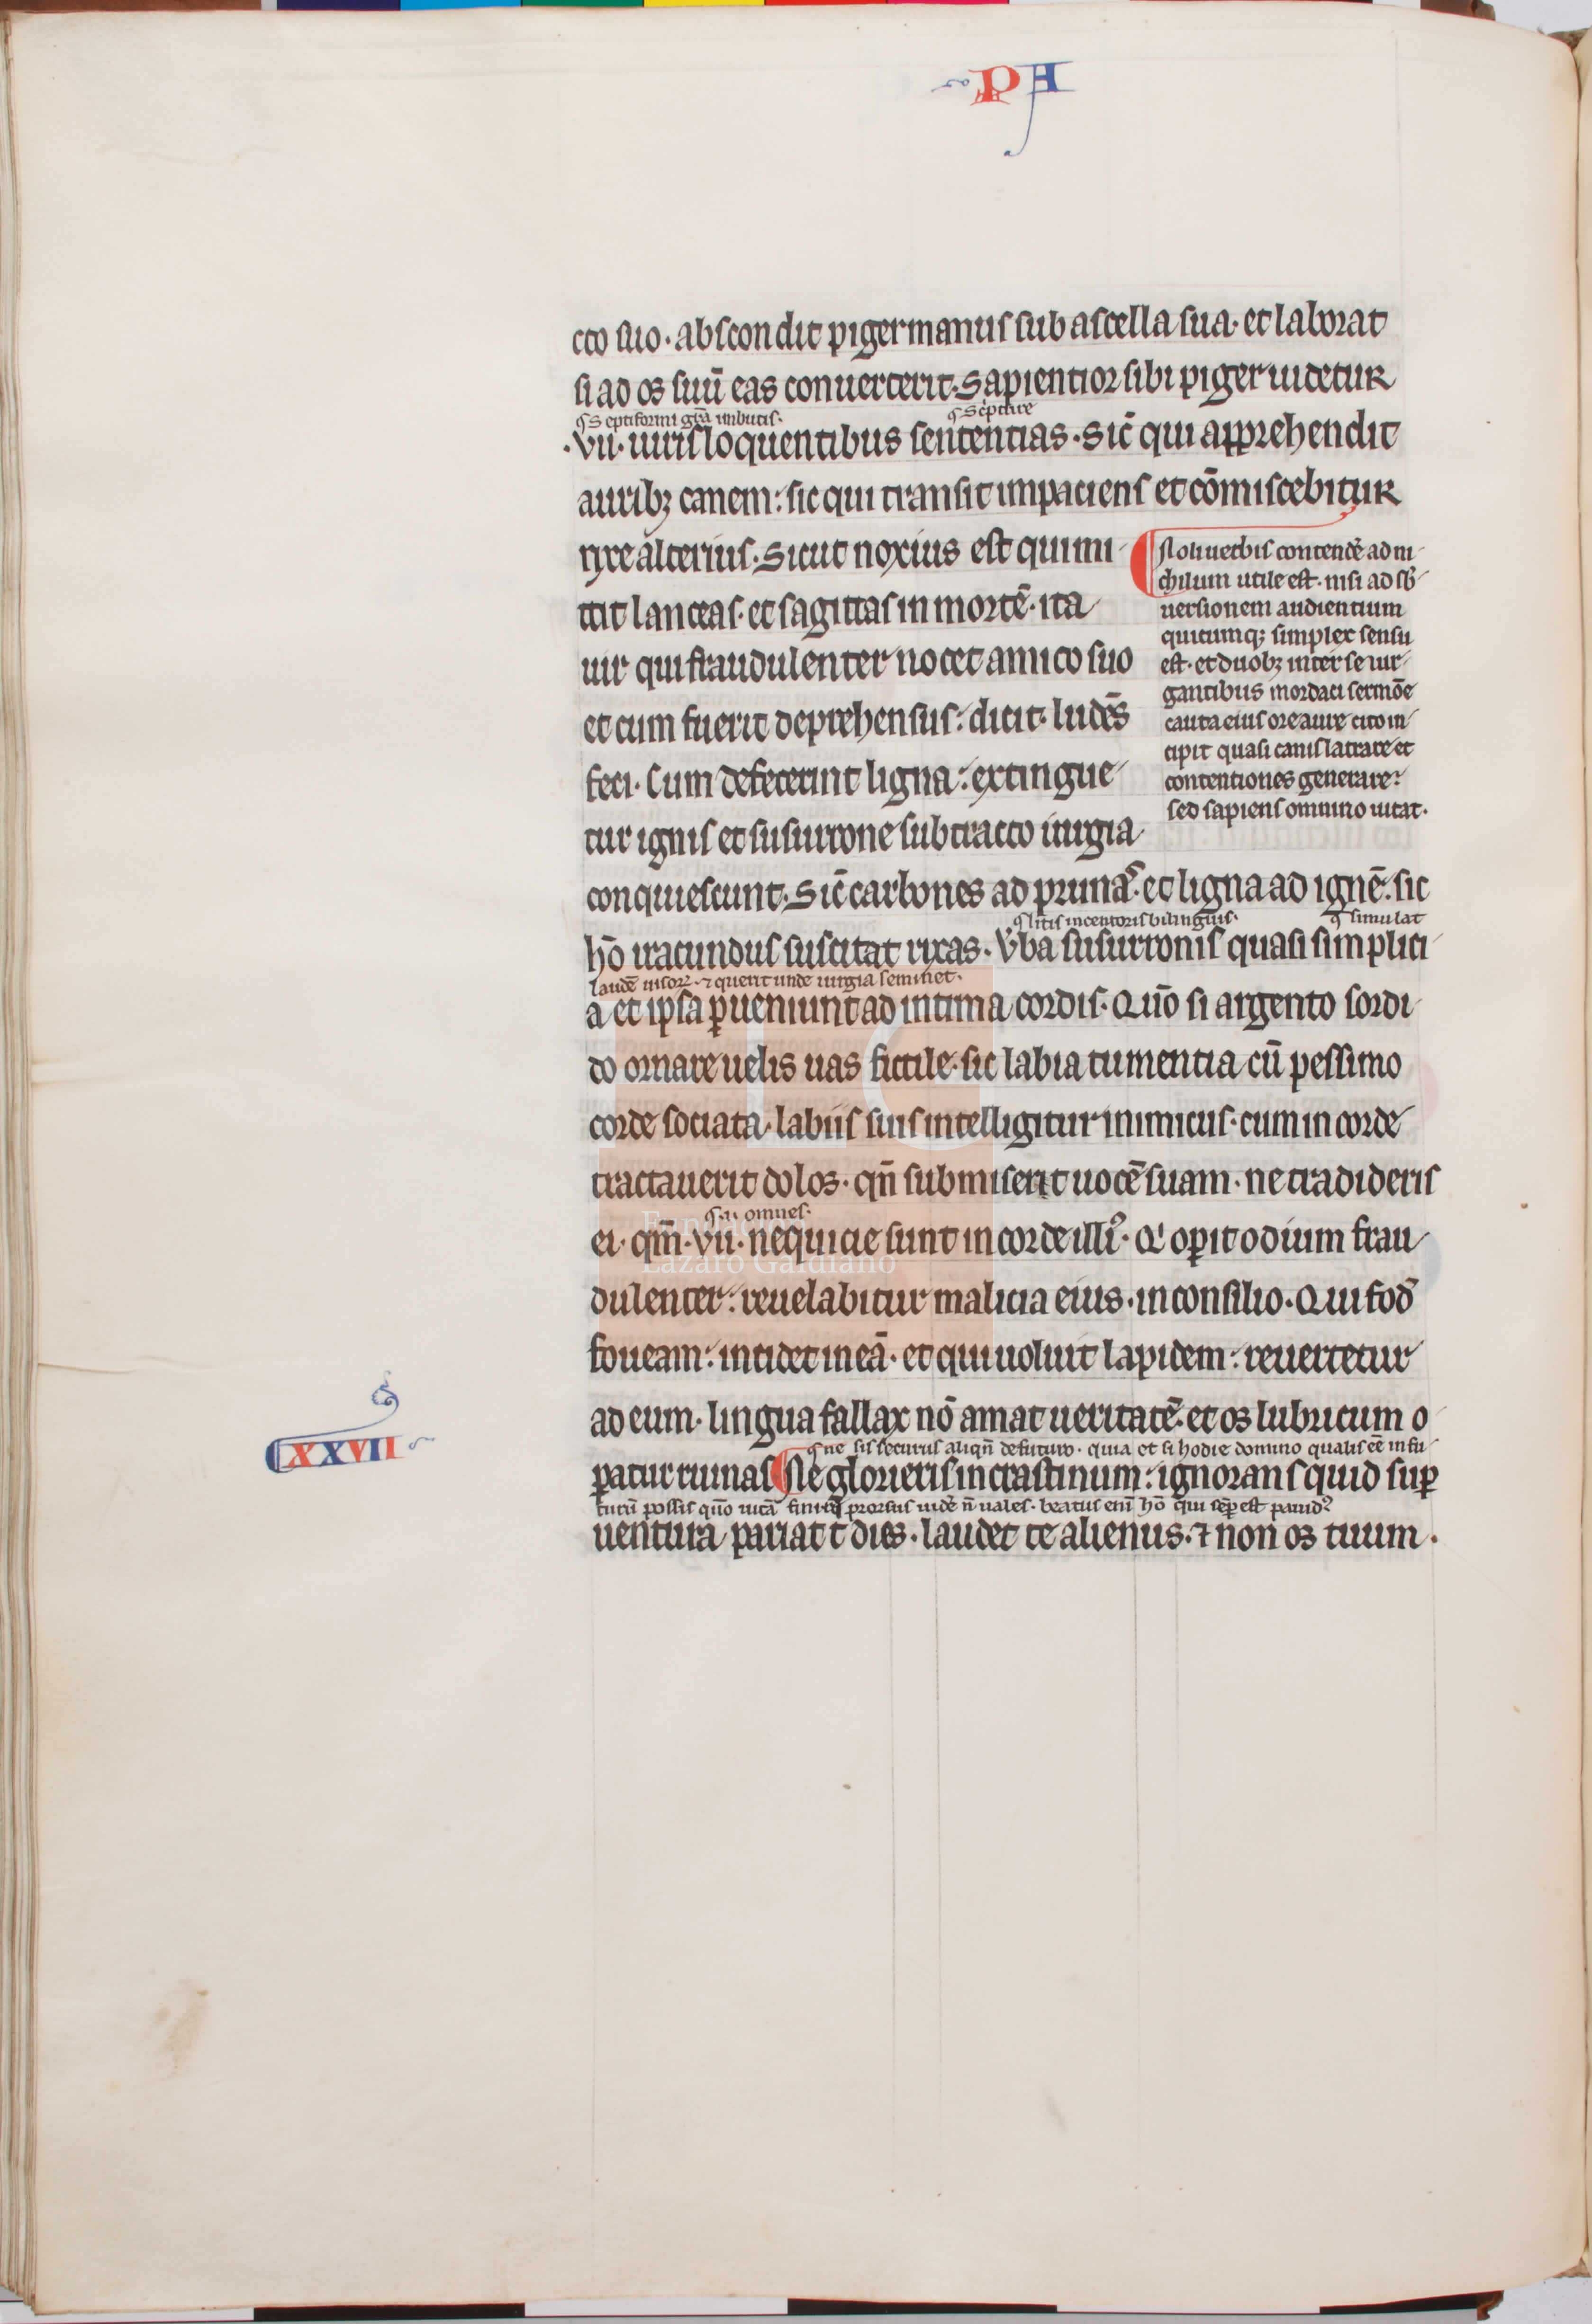 PA
cto suo · abscondit piger manus sub ascella sua · et laborat
si ad os suū eas conuerterit · Sapientior sibi piger uidetur
Septiformi gr̄a imbutis · Sc̄pture
· vii · uiris loquentibus sententias · Sic̄ qui apprehendit
auribꝫ canem : sic qui transit inpaciens et cōmiscebitur
rixe alterius · Sicut noxius est qui mi
ttit lanceas · et sagittas in mortē · ita
uir qui fraudulenter nocet amico suo
et cum fuerit deprehensus : dicit · ludēs
feci · Cum defecerint ligna : extingue
tur ignis et susurrone subtracto iurgia
Noli uerbis contend'e ad ni
chilum utile est · nisi ad sb'
uersionem audientium
quicumqꝫ simplex sensu
est · et duobꝫ inter se iur
gantibus mordaci sermōe
cauta eius ore aure cito in
cipit quasi canis latrare et
contentiones generare :
sed sapiens omnino uitat ·
conquiescunt · Sic̄ carbones ad prunas · et ligna ad ignē · sic
litis incentoris bilinguis · simulat
hō iracundus suscitat rixas · V'ba susurronis quasi simplici
laudē uisorꝝ · ⁊ querit unde iurgia seminet ·
a et ipsa ꝑueniunt ad intima cordis · Quō si argento sordi
do ornare uelis uas fictile · sic labia tumentia cū pessimo
corde sociata · labiis suis intelligitur inimicus · cum in corde
tractauerit dolos · qn̄ submiserit uocē suam · ne tradideris
omnes ·
ei · qm̄ · vii · nequicie sunt in corde illi᾿ · Q' oꝑit odium frau
dulenter : reuelabitur malicia eius · in consilio · Qui fod'
foueam : incidet in eā · et qui uoluit lapidem : reuertetur
ad eum · lingua fallax nō amat ueritatē · et os lubricum o
ne sis securus aliqn̄ de futuro · quia et si hodie domino qualis eē in fu
XXVII
ꝑatur ruinas Ne glorieris in crastinum : ignorans quid suꝑ
turū possis quō uitā finias prorsus uid'e n̄ uales · beatus eni hō qui seꝑ est pauid᾿
uentura pariat t dies · laudet te alienus · ⁊ non os tuum ·
Fundación
Lázaro Galdiano